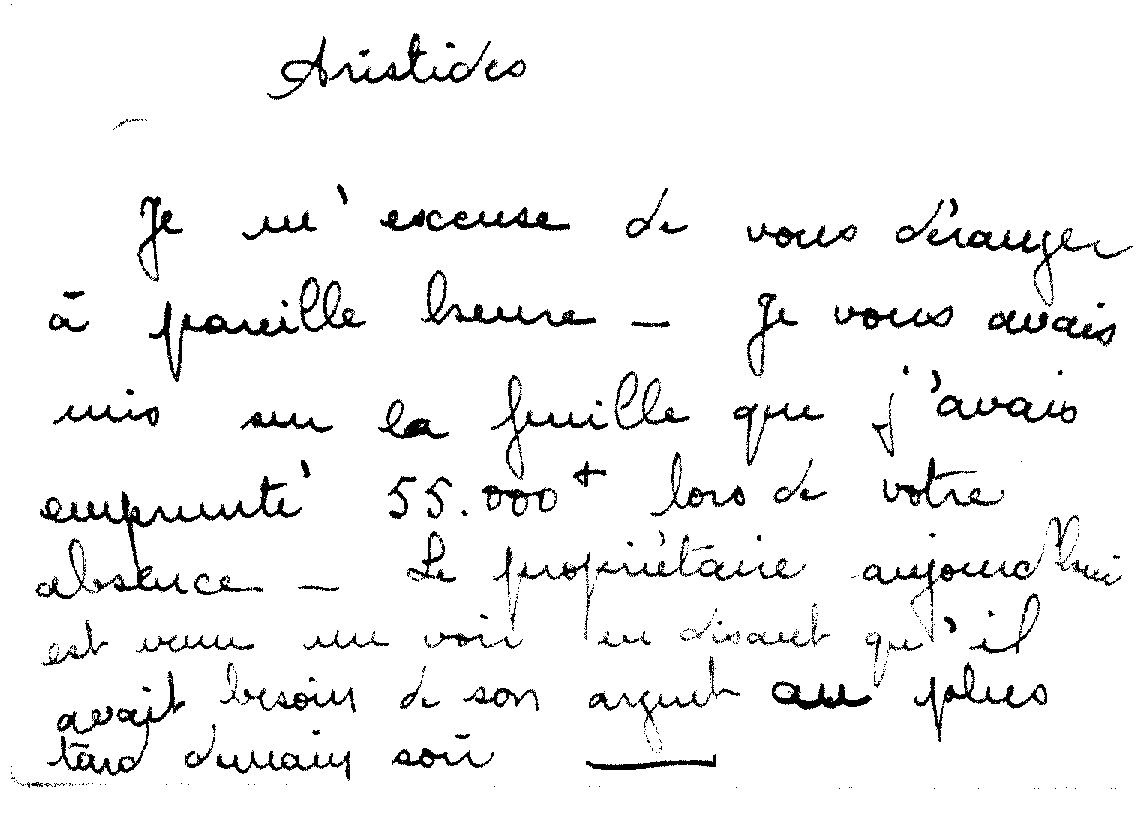 Aristides
Je m'excuse de vous déranger
à pareille heure – Je vous avais
mis sur la feuille que j'avais
emprunté 55.000+ lors de votre
absence – Le propriétaire aujourd'hui
est venu me voir en disant qu'il
avait besoin de son argent au plus
tard demain soir —